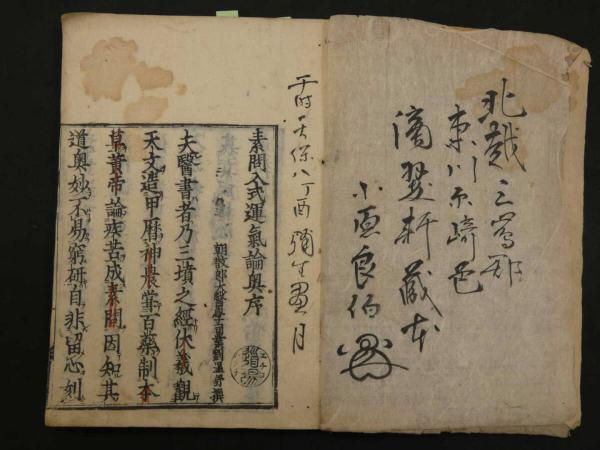 北越三嶌郡
東川尓﨑邑
滴翠軒蔵本
小原良伯
于時天保八丁酉弥生畫月
素問入式運氣論奥序
朝散郎太醫學司業劉温舒撰
夫醫書者乃三墳之經伏羲觀
天文造甲曆神農嘗百藥制本
草黄帝論疾苦成素問因知其
道奥妙不易窮研自非留心刻